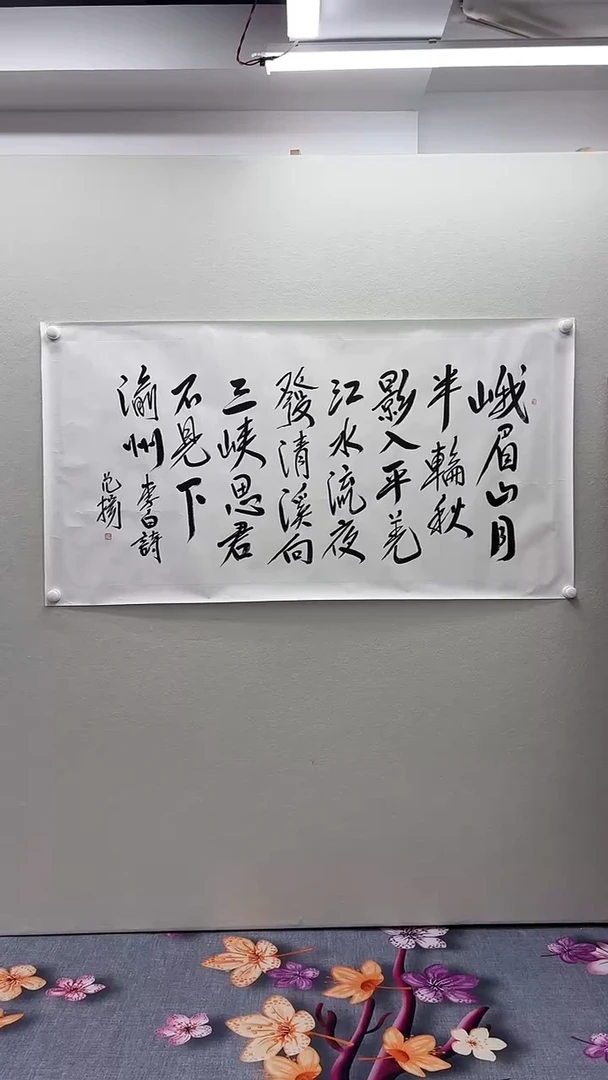 峨眉山月
半輪秋
影入平羌
江水流夜
發清溪向
三峽思君
不見下
渝州 李白詩
范揚